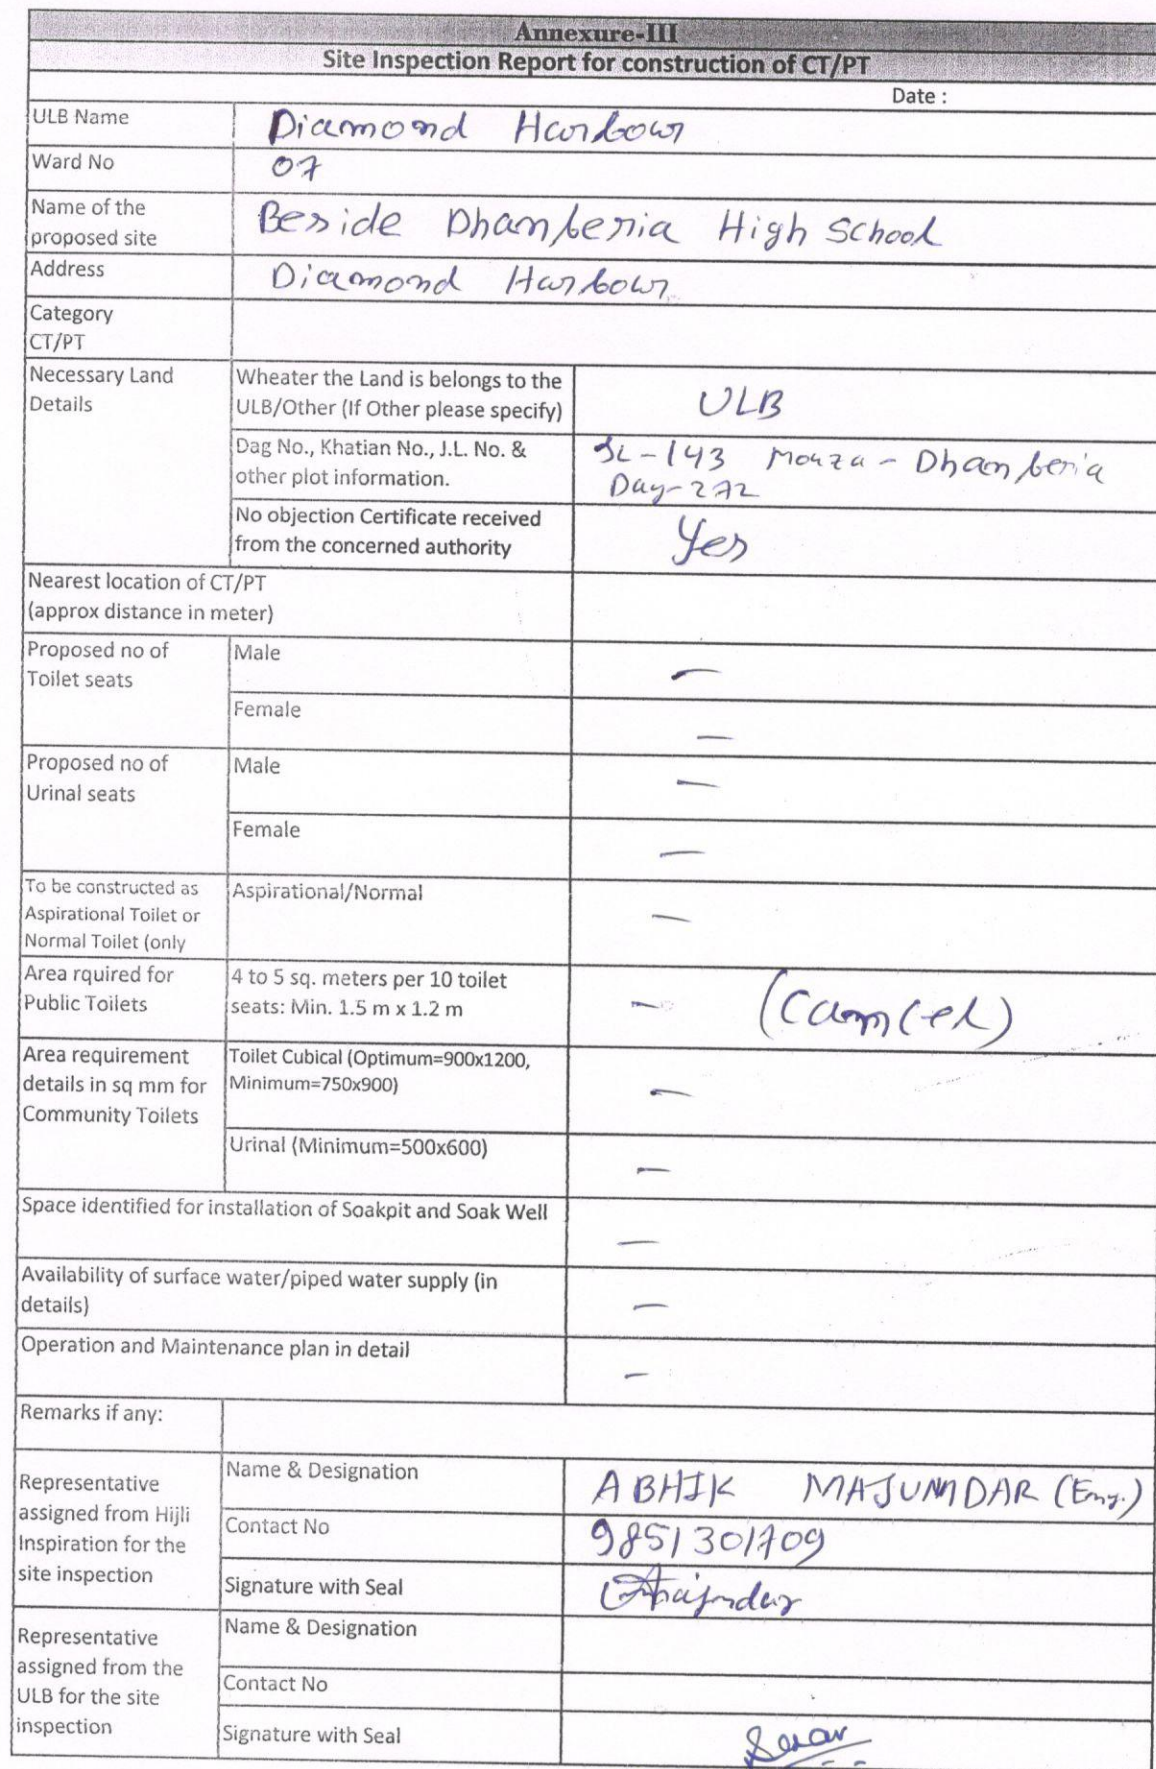 Annexure-III
Site Inspection Report for construction of CT/PT
Date :
ULB Name Diamond Harbour
Ward No 07
Name of the
proposed site Beside Dhamberia High School
Address Diamond Harbour
Category
CT/PT
Necessary Land
Details
Wheater the Land is belongs to the
ULB/Other (If Other please specify) ULB
Dag No., Khatian No., J.L. No. &
other plot information.
JL-143 Mouza - Dhamberia
Dag-272
No objection Certificate received
from the concerned authority Yes
Nearest location of CT/PT
(approx distance in meter)
Proposed no of
Toilet seats
Male —
Female —
Proposed no of
Urinal seats
Male —
Female —
To be constructed as
Aspirational Toilet or
Normal Toilet (only
Aspirational/Normal —
Area rquired for
Public Toilets
4 to 5 sq. meters per 10 toilet
seats: Min. 1.5 m x 1.2 m — (Cancel)
Area requirement
details in sq mm for
Community Toilets
Toilet Cubical (Optimum=900x1200,
Minimum=750x900) —
Urinal (Minimum=500x600) —
Space identified for installation of Soakpit and Soak Well —
Availability of surface water/piped water supply (in
details) —
Operation and Maintenance plan in detail —
Remarks if any:
Representative
assigned from Hijli
Inspiration for the
site inspection
Name & Designation ABHIK MAJUMDAR (Eng.)
Contact No 9851301709
Signature with Seal
Representative
assigned from the
ULB for the site
inspection
Name & Designation
Contact No
Signature with Seal